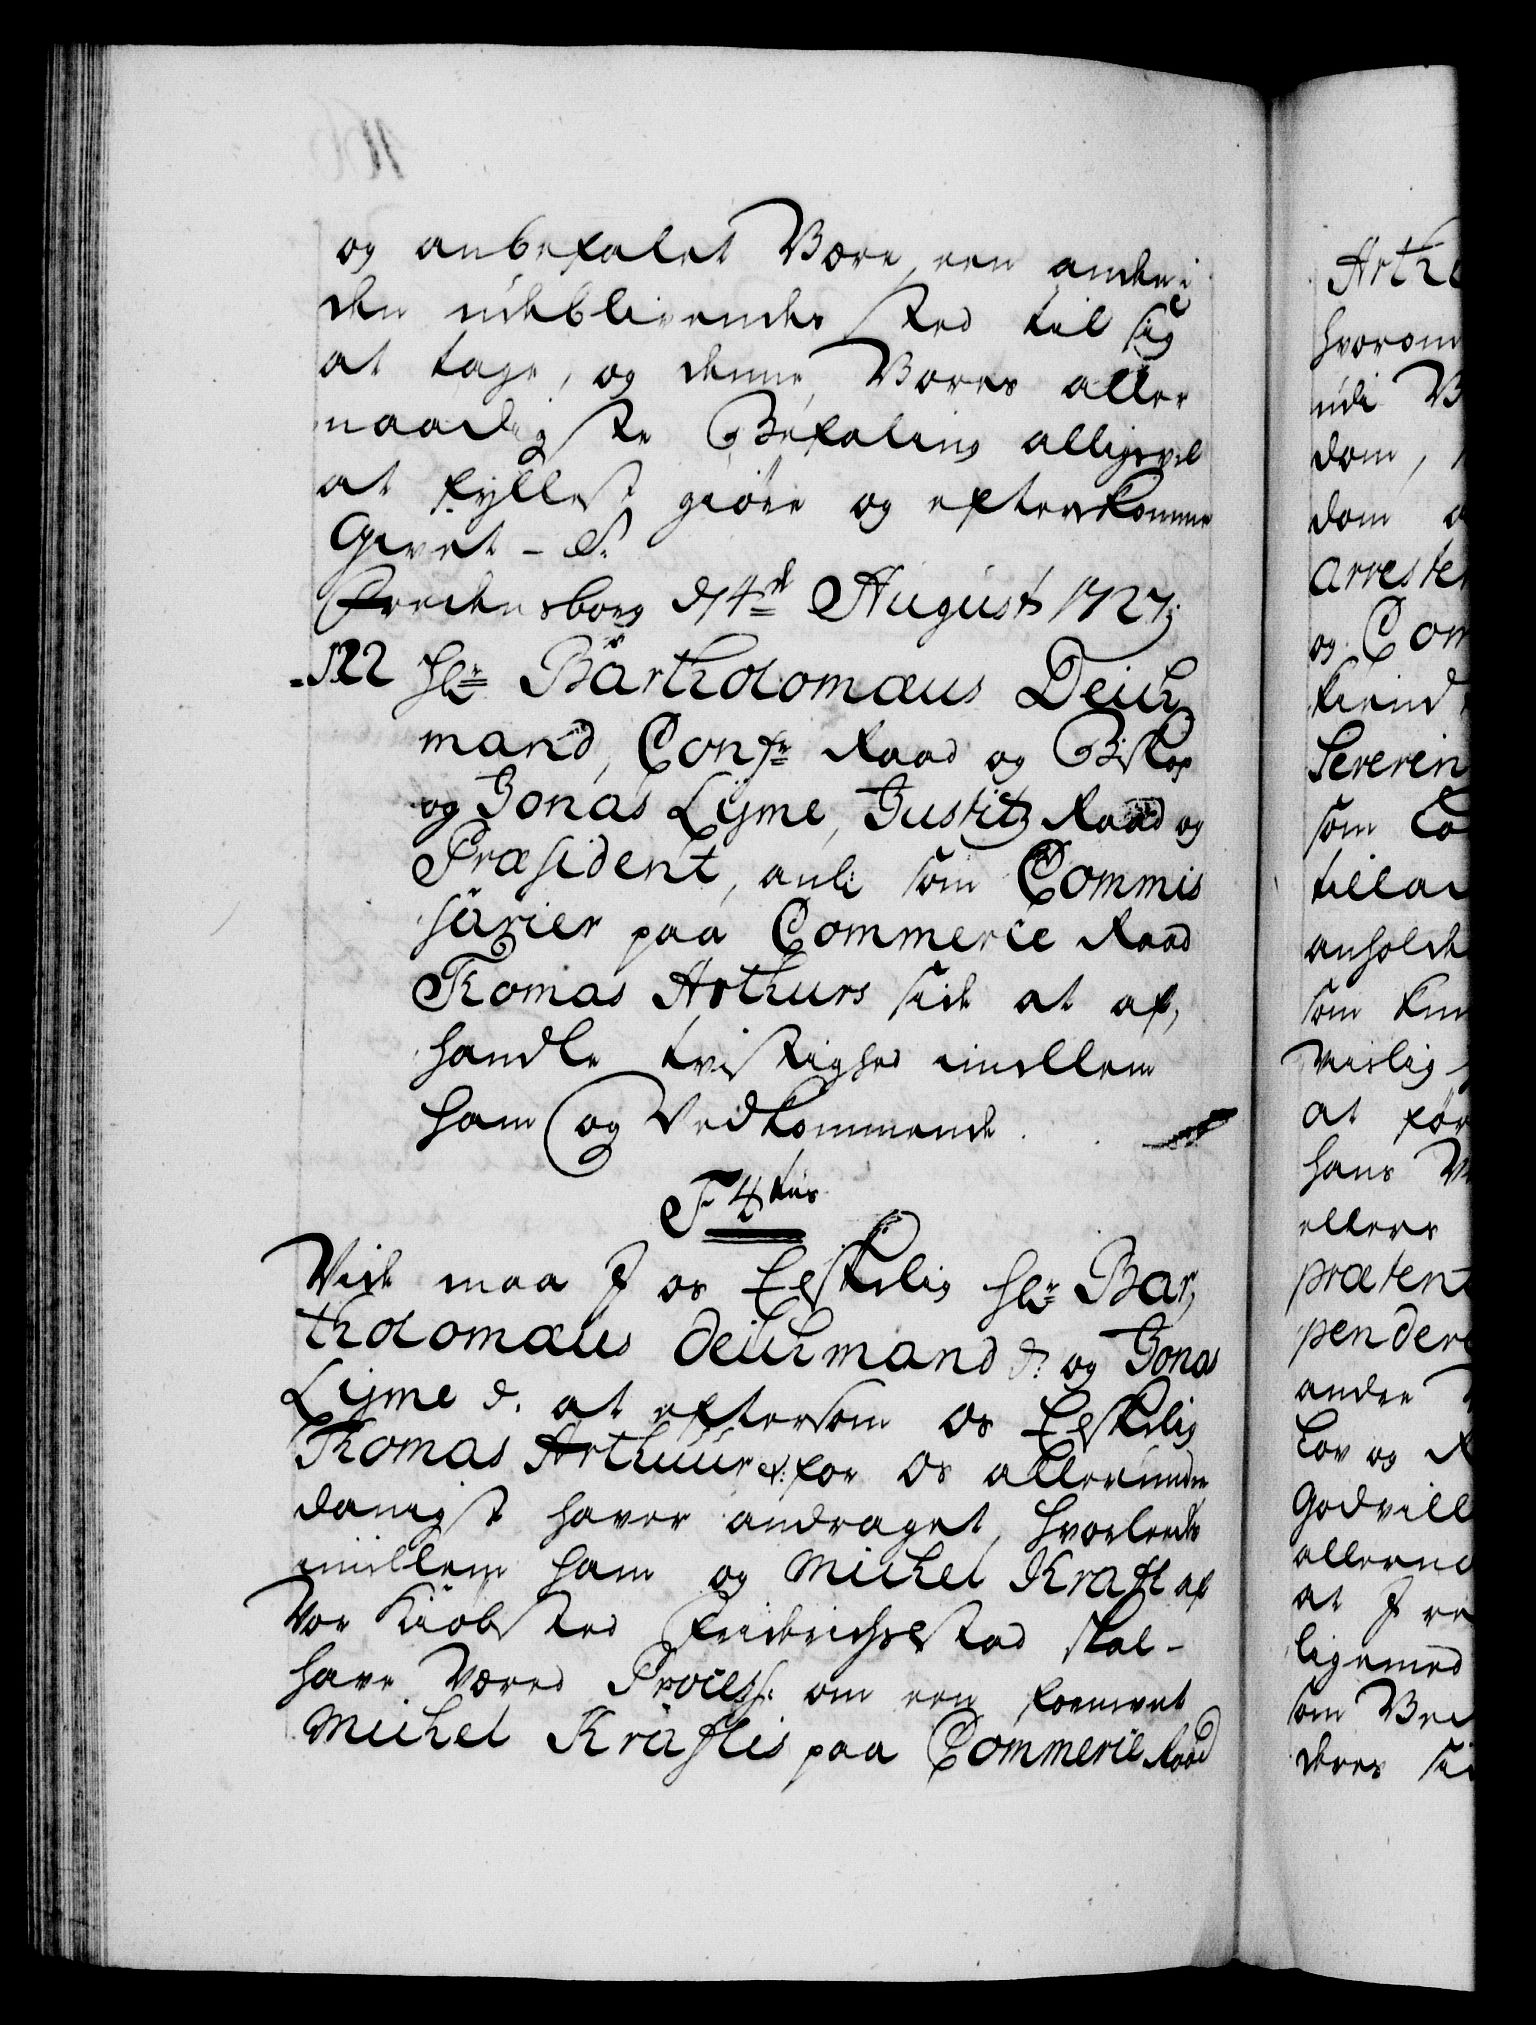 og anbefalet Være, een anden i
den udeblivendes sted til sig
at tage, og denne Vores aller
naadigste Befaling alligevel
at fyllest giøre og efterkomme
Givet - P.
Fredensborg d/4de August 1727;
522 Hr Bartholomæus Deich
mand, Confr Raad og Biskop
og Jonas Lyme, Justitz Raad og
Præsident, anl: som Commis
sarier paa Commerce Raad
Thomas Arthurs side at af,
handle tvistighed imellem
ham og Vedkommende.
F 4tus
Viide maa I os Elskelig Hr Bar,
tholomæus Deichmand P: og Jonas
Lyme P. at eftersom Os Elskelig
Thomas Arthuur P: for Os allerunder
danigst haver andraget, hvorledes
imellem ham og Michel Kraft af
Vor Kiøbsted Friderichsstad skal-
have Været Process: om een formeent
Michel Krafts paa Commerce Raad
Arth
hvorom
udi V
dom,
dom
arreste
og Com
Severin
som
tilla
anholde
som
at før
hans
ellers
præten
pendere
andre
Lov og R
Godvill
allerna
at I
ligemed
deres